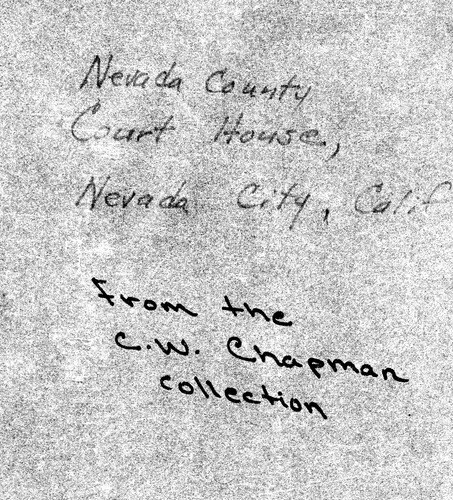 Nevada County
Court House,
Nevada City, Calif
From the
C.W. Chapman
collection